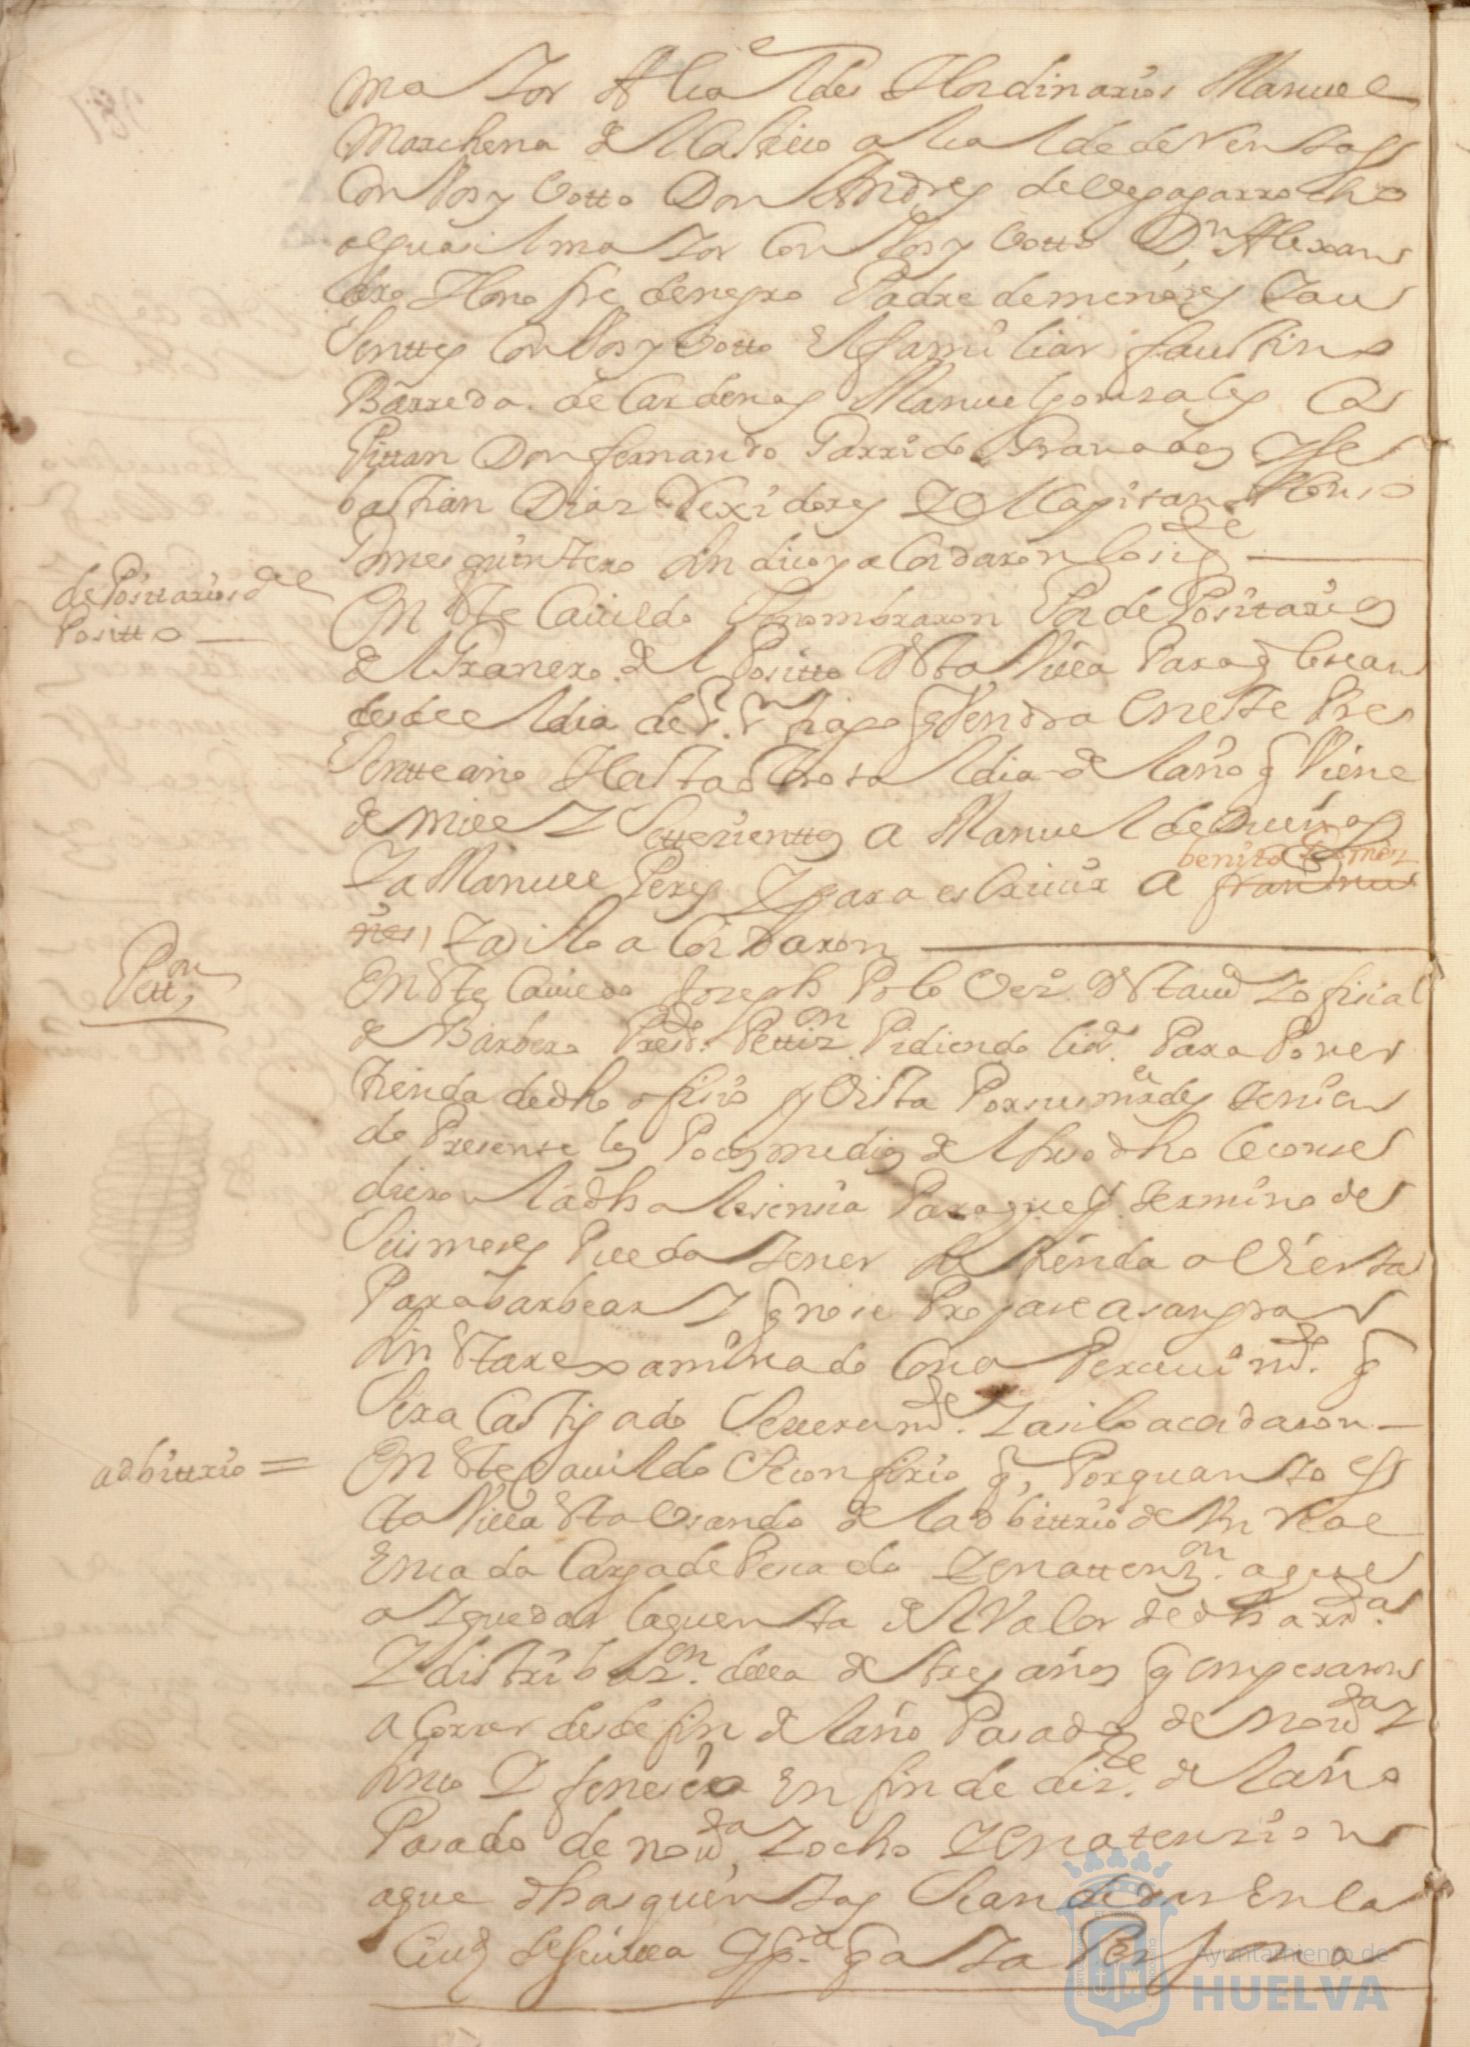 mayor Alcaldes Hordinarios Manuel
Marchena del Castillo alcalde de Ventas
Con Vos y Votto Don Andres de Vega garrocho
alguasil mayor Con Vos y Votto Dn Alexan
dro Honofre de negro Padre de menores y au
Senttes Con Vos y Votto El familiar faustino
Barreda de Cardenas Manuel gonsales Ca
Pittan Don fernando Garrido Granados y Se
bastian Dias Rexidores y El Capitan Alonso
Gomes quintero Sindico y acordaron lo sigte
de Positarios del
Positto
En este Cauildo Nombraron Por de Positarios
del Granero del Positto desta Villa Para q lo sean
desde el dia de Sr. Sn tiago q Vendra en este Pre
Sentte año Hasta otro tal dia del año q Viene
de mill y Settecienttos a Manuel de Dueñas
benito Gomez
y a Manuel Peres y para escriuir a
y asi lo a Cordaron
Pettn
En este Cauildo Joseph Polo Vez. desta Va y ofisial
de Barbero Presdo. Pettizn Pidiendo lisa. Para Poner
tienda de dho ofisio y Vista Por sus mrdes tenien
do Presente los Pocos medios del suso dho le conse
dieron la dha lisensia Para que Pr termino de
Seis meses Pueda tener la tienda a Vierta
Para barbear y q no se Propase a sangrar
sin estar examinado Con a Perciuimto. q
Sera Castigado Seueramte. y asi lo acordaron
adbittrio =
En este Cauildo Se confirio q, Por quanto es
ta Villa esta Vsando del adbittrio de Vn Real
En cada Carga de Pescado y en attenzn. a que se
a de dar la quenta del Valor de dha
y distribuzn. della de tres años q empesaron
a Correr desde fin del año Pasado de nouta y
sinco y fenesio En fin de dize. del año
Pasado de nouta y ocho y en atenzion
a que dhas quentas Se an de dar En la
Ciud de Seuilla y pa q a sta Persona
Ayuntamiento de
HUELVA